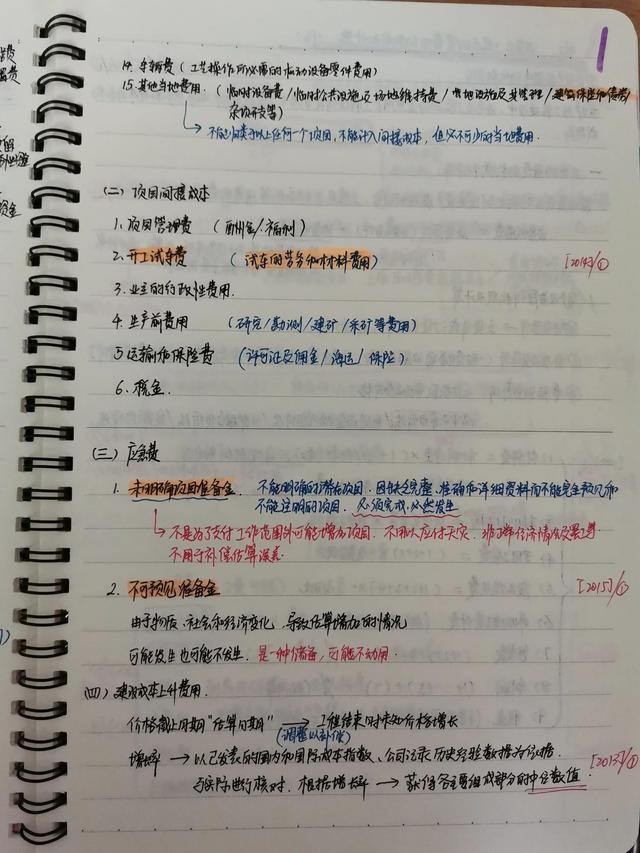 14. 车辆费（工艺操作所必需的机动设备零件费用）
15. 其他当地费用.（临时设备费/临时公共设施及场地维持费/营地设施及其管理/建筑保险和债券/
杂项开支等）
不能归类于以上任何一个项目,不能计入间接成本,但又不可少的当地费用.
（二）项目间接成本
1. 项目管理费（薪金/福利）
2. 开工试车费（试车的劳务和材料费用） [2014]/①
3. 业主的行政性费用.
4. 生产前费用（研究/勘测/建矿/采矿等费用）
5. 运输和保险费（许可证及佣金/海运/保险）
6. 税金.
（三）应急费
1. 未明确项目准备金. 不能明确的潜在项目. 因缺乏完整、准确和详细资料而不能完全预见和
不能注明的项目. 必须完成,必然发生
不是为了支付工作范围外可能增加项目. 不用以应付天灾、非正常经济情况及罢工等
不用于补偿估算误差.
2. 不可预见准备金 [2015]/①
由于物质、社会和经济变化,导致估算增加的情况
可能发生也可能不发生. 是一种储备,可能不动用.
（四）建设成本上升费用.
价格截止日期"估算日期" → 工程结束时未知价格增长
（调整以补偿）
增长率 → 以已发表的国内和国际成本指数、公司记录历史经验数据为依据. [2013]/①
与实际进行核对. 根据增长率 → 获得各主要组成部分的中位数值.
1